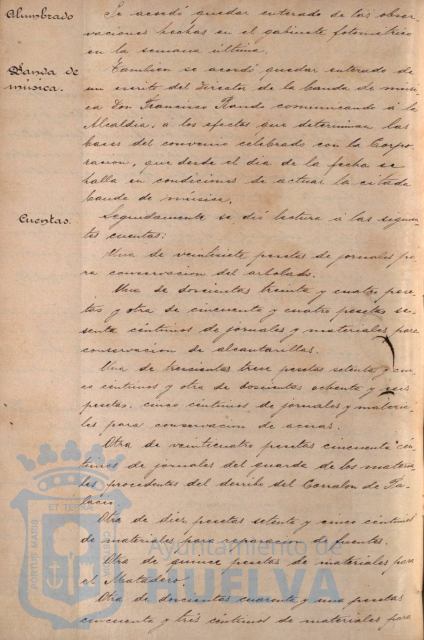 Alumbrado
Se acordó quedar enterado de las obser-
vaciones hechas en el gabinete fotométrico
en la semana última.
Banda de
música.
Tambien se acordó quedar enterado de
un escrito del Director de la banda de músi-
ca Don Francisco comunicando á la
Alcaldia, a los efectos que determinan las
bases del convenio celebrado con la Corpo-
racion, que desde el dia de la fecha se
halla en condiciones de actuar la citada
banda de música.
Cuentas.
Seguidamente se dió lectura á las siguien-
tes cuentas:
Una de veintisiete pesetas de jornales pa-
ra conservacion del arbolado.
Una de doscientas treinta y cuatro pese-
tas y otra de cincuenta y cuatro pesetas se-
senta céntimos de jornales y materiales para
conservacion de alcantarillas.
Una de trescientas trece pesetas setenta y cin-
co céntimos y otra de doscientas ochenta y seis
pesetas cinco céntimos de jornales y materia-
les para conservacion de aceras.
Otra de veinticuatro pesetas cincuenta cén-
timos de jornales del guarda de los materia-
les procedentes del derribo del Corralon de Pa-
lacio.
Otra de diez pesetas setenta y cinco céntimos
de materiales para reparacion de fuentes.
Otra de quince pesetas de materiales para
el Matadero.
Otra de doscientas cuarenta y una pesetas
cincuenta y tres céntimos de materiales para
PORTUS MARIS ET TERRAE
Ayuntamiento de
HUELVA